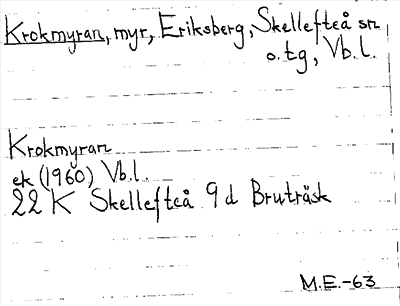 Krokmyran, myr, Eriksberg, Skellefteå sn
o. tg, Vb. l.
Krokmyran
ek (1960) Vb. l.
22 K Skellefteå 9 d Bruträsk
M.E.-63